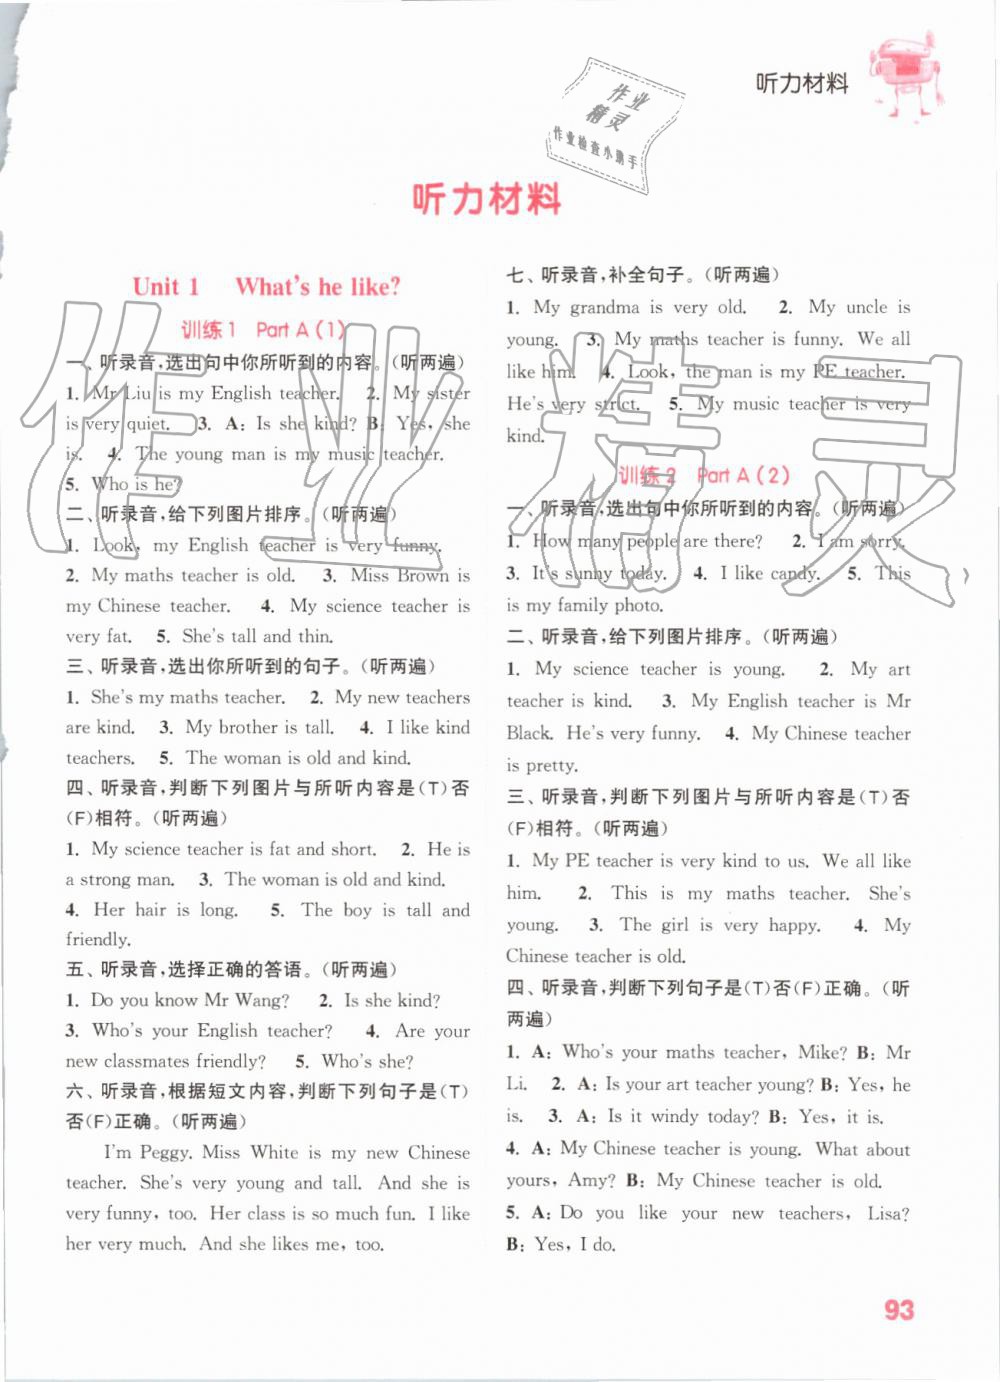 听力材料
作业
精灵
作业检查小助手
听力材料
Unit 1 What's he like?
训练1 Part A(1)
一、听录音,选出句中你所听到的内容。(听两遍)
1. Mr Liu is my English teacher. 2. My sister
is very quiet. 3. A: Is she kind? B: Yes, she
is. 4. The young man is my music teacher.
5. Who is he?
二、听录音,给下列图片排序。(听两遍)
1. Look, my English teacher is very funny.
2. My maths teacher is old. 3. Miss Brown is
my Chinese teacher. 4. My science teacher is
very fat. 5. She's tall and thin.
三、听录音,选出你所听到的句子。(听两遍)
1. She's my maths teacher. 2. My new teachers
are kind. 3. My brother is tall. 4. I like kind
teachers. 5. The woman is old and kind.
四、听录音,判断下列图片与所听内容是(T)否
(F)相符。(听两遍)
1. My science teacher is fat and short. 2. He is
a strong man. 3. The woman is old and kind.
4. Her hair is long. 5. The boy is tall and
friendly.
五、听录音,选择正确的答语。(听两遍)
1. Do you know Mr Wang? 2. Is she kind?
3. Who's your English teacher? 4. Are your
new classmates friendly? 5. Who's she?
六、听录音,根据短文内容,判断下列句子是(T)
否(F)正确。(听两遍)
I'm Peggy. Miss White is my new Chinese
teacher. She's very young and tall. And she is
very funny, too. Her class is so much fun. I like
her very much. And she likes me, too.
七、听录音,补全句子。(听两遍)
1. My grandma is very old. 2. My uncle is
young. 3. My maths teacher is funny. We all
like him. 4. Look, the man is my PE teacher.
He's very strict. 5. My music teacher is very
kind.
训练2 Part A(2)
一、听录音,选出句中你所听到的内容。(听两遍)
1. How many people are there? 2. I am sorry.
3. It's sunny today. 4. I like candy. 5. This
is my family photo.
二、听录音,给下列图片排序。(听两遍)
1. My science teacher is young. 2. My art
teacher is kind. 3. My English teacher is Mr
Black. He's very funny. 4. My Chinese teacher
is pretty.
三、听录音,判断下列图片与所听内容是(T)否
(F)相符。(听两遍)
1. My PE teacher is very kind to us. We all like
him. 2. This is my maths teacher. She's
young. 3. The girl is very happy. 4. My
Chinese teacher is old.
四、听录音,判断下列句子是(T)否(F)正确。(听
两遍)
1. A: Who's your maths teacher, Mike? B: Mr
Li. 2. A: Is your art teacher young? B: Yes, he
is. 3. A: Is it windy today? B: Yes, it is.
4. A: My Chinese teacher is young. What about
yours, Amy? B: My Chinese teacher is old.
5. A: Do you like your new teachers, Lisa?
B: Yes, I do.
作业精灵
93